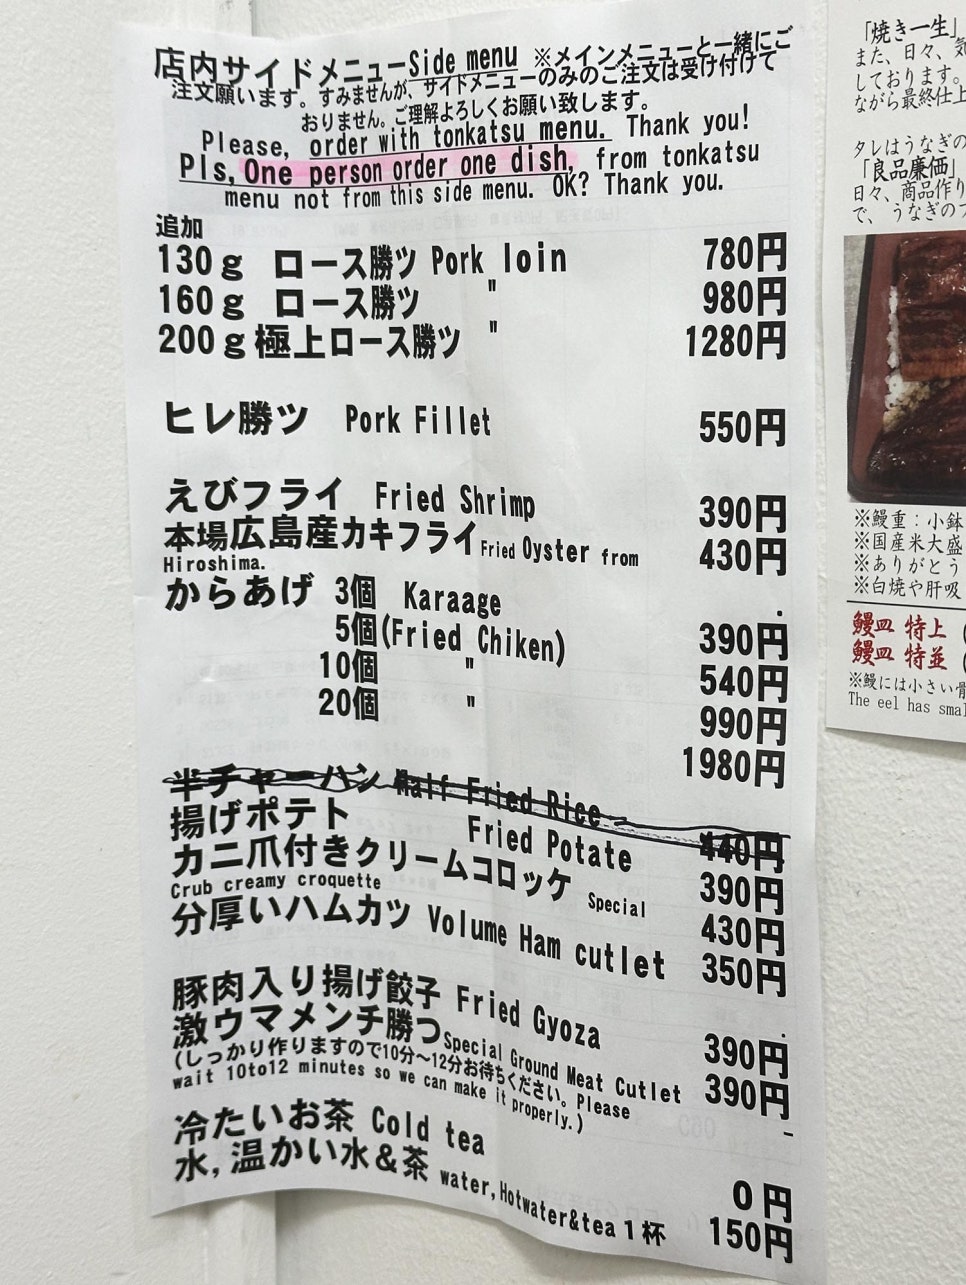 店内サイドメニューSide menu ※メインメニューと一緒にご
注文願います。すみませんが、サイドメニューのみのご注文は受け付けて
おりません。ご理解よろしくお願い致します。
Please, order with tonkatsu menu. Thank you!
Pls, One person order one dish, from tonkatsu
menu not from this side menu. OK? Thank you.
追加
130g ロース勝ツ Pork loin 780円
160g ロース勝ツ " 980円
200g極上ロース勝ツ " 1280円
ヒレ勝ツ Pork Fillet 550円
えびフライ Fried Shrimp 390円
本場広島産カキフライFried Oyster from 430円
Hiroshima.
からあげ 3個 Karaage 390円
5個(Fried Chiken) 540円
10個 " 990円
20個 " 1980円
半チャーハン Half Fried Rice 440円
揚げポテト Fried Potate 390円
カニ爪付きクリームコロッケ Special 430円
Crub creamy croquette
分厚いハムカツ Volume Ham cutlet 350円
豚肉入り揚げ餃子 Fried Gyoza 390円
激ウマメンチ勝つSpecial Ground Meat Cutlet 390円
(しっかり作りますので10分～12分お待ちください。Please
wait 10to12 minutes so we can make it properly.)
冷たいお茶 Cold tea 0円
水,温かい水&茶 water,Hotwater&tea1杯 150円
「焼き一生」
また、日々、気
しております。
ながら最終仕上
タレはうなぎの
「良品廉価」
日々、商品作り
で、うなぎの
※鰻重：小鉢
※国産米大盛
※ありがとう
※白焼や肝吸
鰻皿 特上
鰻皿 特並
※鰻には小さい骨
The eel has smal